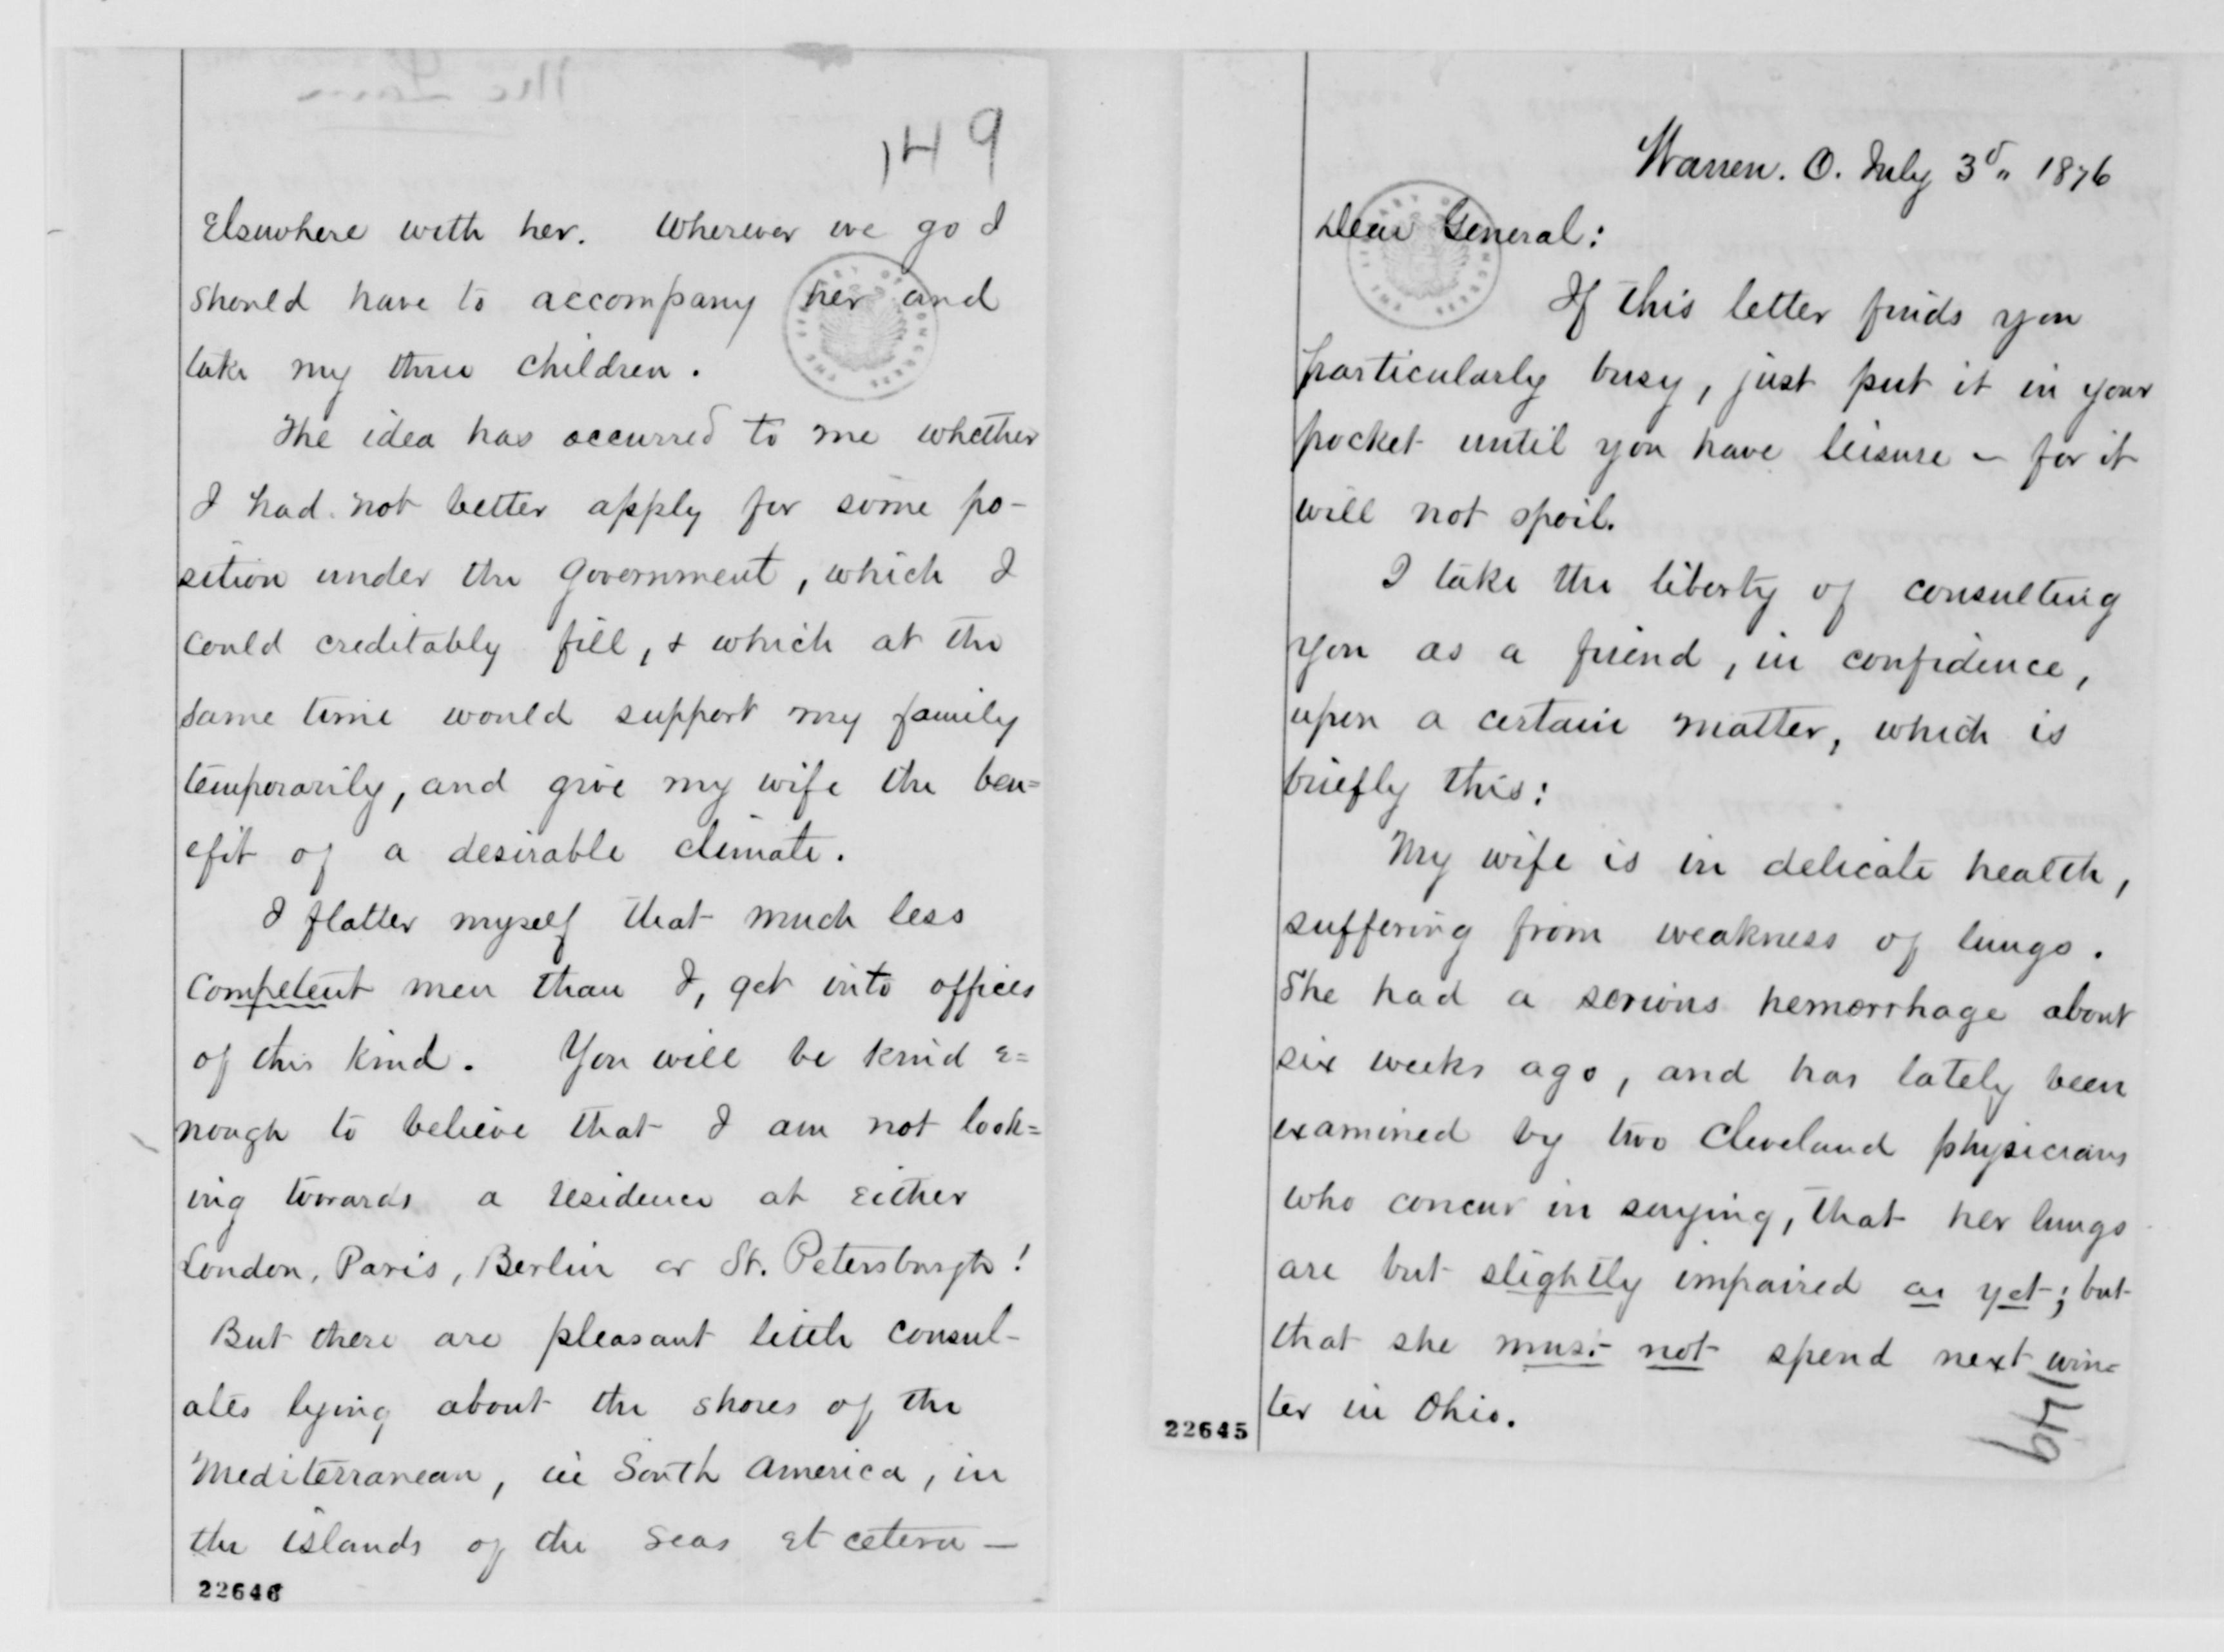 149
Elsewhere with her. Wherever we go I
should have to accompany her and
take my three children.
The idea has occurred to me whether
I had not better apply for some po-
sition under the Government, which I
could creditably fill, & which at the
same time would support my family
temporarily, and give my wife the ben=
efit of a desirable climate.
I flatter myself that much less
competent men than I, get into offices
of this kind. You will be kind e=
nough to believe that I am not look=
ing towards a residence at either
London, Paris, Berlin or St. Petersburgh!
But there are pleasant little consul-
ates lying about the shores of the
Mediterranean, in South America, in
the islands of the seas et cetera —
22646
Warren. O. July 3d, 1876
Dear General:
If this letter finds you
particularly busy, just put it in your
pocket until you have leisure – for it
will not spoil.
I take the liberty of consulting
you as a friend, in confidence,
upon a certain matter, which is
briefly this:
My wife is in delicate health,
suffering from weakness of lungs.
She had a serious hemorrhage about
six weeks ago, and has lately been
examined by two Cleveland physicians
who concur in saying, that her lungs
are but slightly impaired as yet; but
that she must not spend next win=
ter in Ohio.
149
22645